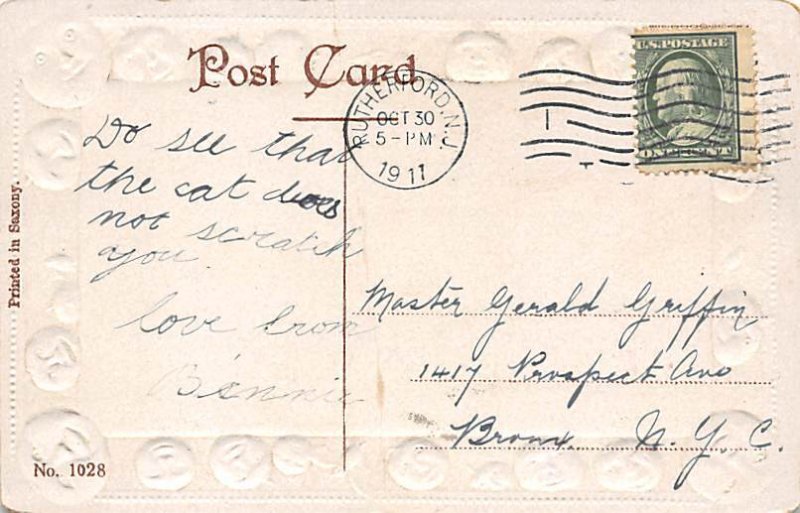 Post Card
RUTHERFORD, N.J.
OCT 30
5-PM
1911
U.S. POSTAGE
Do see that
the cat does
not scratch
you.
love from
Bennie
Master Gerald Griffin
1417 Prospect Ave
Bronx N. Y. C.
Printed in Saxony.
No. 1028